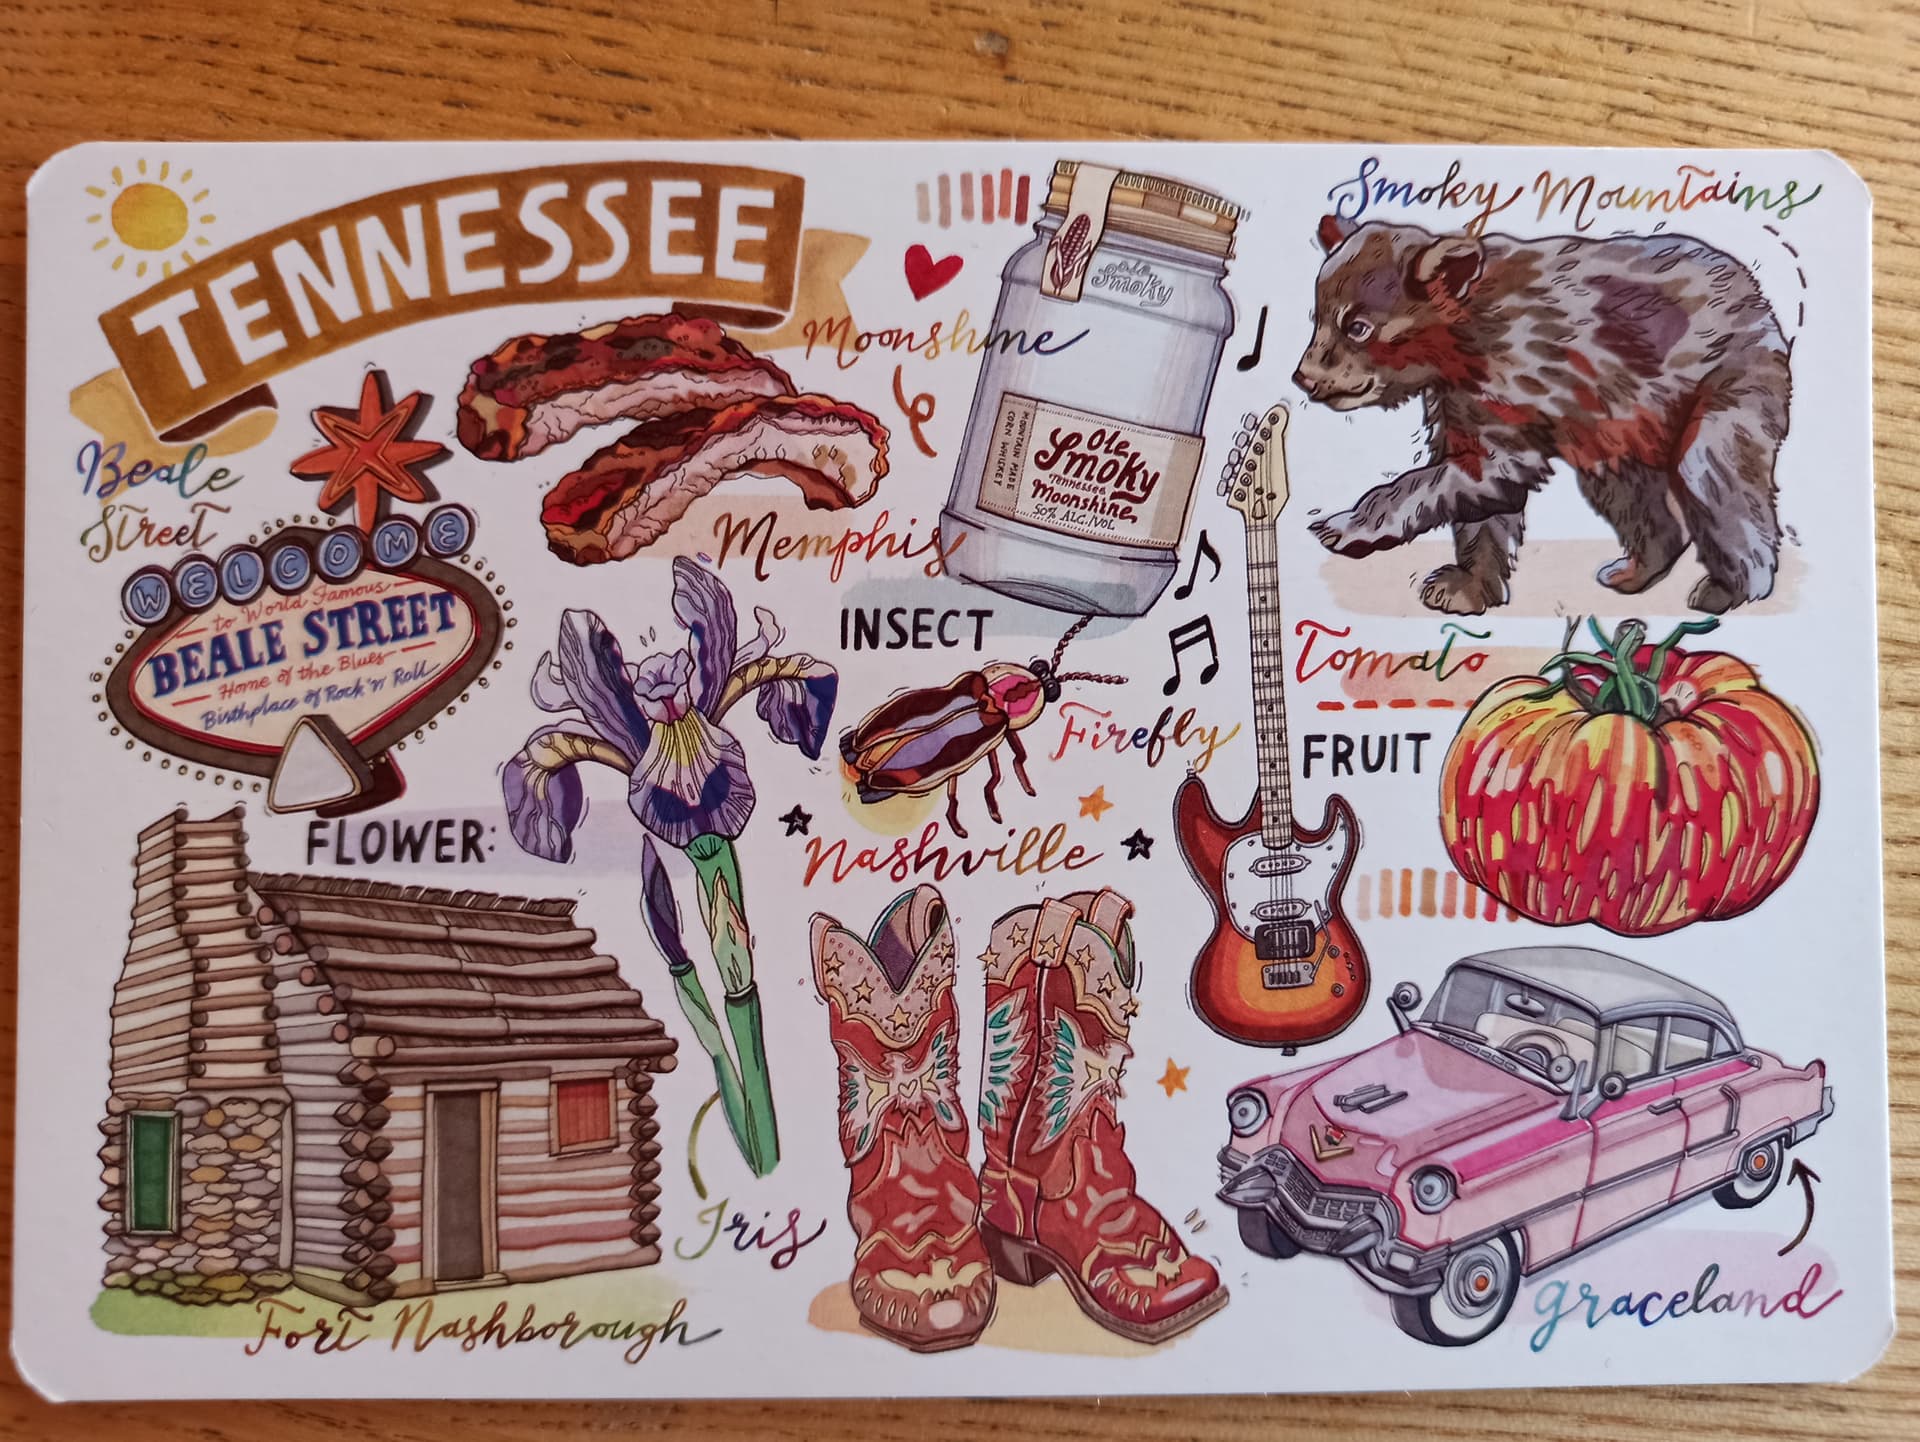 TENNESSEE
Beale
Street
WELCOME
to World Famous
BEALE STREET
Home of the Blues
Birthplace of Rock 'n' Roll
Moonshine
Memphis
Ole
Smoky
MOUNTAIN MADE
CORN WHISKEY
Ole
Smoky
Tennessee
Moonshine
50% ALC./VOL
Smoky Mountains
INSECT
Firefly
Tomato
FRUIT
FLOWER:
Iris
Nashville
Fort Nashborough
Graceland